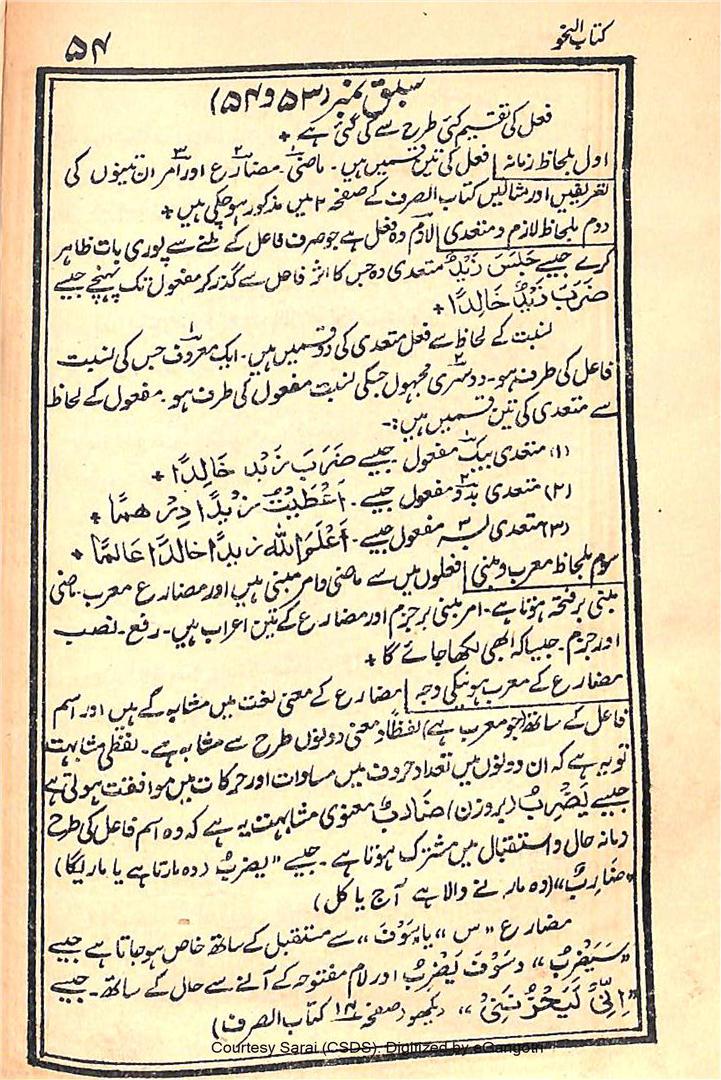 کتاب النحو
۵۴
سبق نمبر (۵۳ و ۵۴)
فعل کی تقسیم کئی طرح سے کی گئی ہے +
اول بلحاظ زمانہ فعل کی تین قسمیں ہیں۔ ماضی۱۔ مضارع۲ اور امر۳ ان تینوں کی
تعریفیں اور مثالیں کتاب الصرف کے صفحہ ۲ میں مذکور ہوچکی ہیں +
دوم بلحاظ لازم و متعدی لازم وہ فعل ہے جو صرف فاعل کے ملنے سے پوری بات ظاہر
کرے جیسے جَلَسَ زَیْدٌ متعدی وہ جس کا اثر فاعل سے گذر کر مفعول تک پہنچے جیسے
ضَرَبَ زَیْدٌ خَالِدًا +
نسبت کے لحاظ سے فعل متعدی کی دو قسمیں ہیں۔ ایک معروف۱ جس کی نسبت
فاعل کی طرف ہو۔ دوسری۲ مجہول جسکی نسبت مفعول کی طرف ہو۔ مفعول کے لحاظ
سے متعدی کی تین قسمیں ہیں:-
(۱) متعدی بیک۱ مفعول جیسے ضَرَبَ زَیْدٌ خَالِدًا +
(۲) متعدی بدو۲ مفعول جیسے۔ اَعْطَیْتُ زَیْدًا دِرْهمًا +
(۳) متعدی بسہ۳ مفعول جیسے۔ اَعْلَمَ اللّٰه زیدًا خالدًا عَالمًا +
سوم بلحاظ معرب و مبنی فعلوں میں سے ماضی و امر مبنی ہیں اور مضارع معرب۔ ماضی
مبنی بر فتحہ ہوتا ہے۔ امر مبنی بر جزم اور مضارع کے تین اعراب ہیں۔ رفع۔ نصب
اور جزم۔ جیسا کہ ابھی لکھا جائے گا +
مضارع کے معرب ہونیکی وجہ مضارع کے معنی لغت میں مشابہ کے ہیں اور اسم
فاعل کے ساتھ (جو معرب ہے) لفظاً و معنی دونوں طرح سے مشابہ ہے۔ لفظی مشابہت
تو یہ ہے کہ ان دونوں میں تعداد حروف میں مساوات اور حرکات میں موافقت ہوتی ہے
جیسے یَضْرِبُ (بروزن) ضَارِبٌ معنوی مشابہت یہ ہے کہ وہ اسم فاعل کی طرح
زمانہ حال و استقبال میں مشترک ہوتا ہے۔ جیسے "یضرِبُ (وہ مارتا ہے یا ماریگا)
"ضَارِبٌ" (وہ مارنے والا ہے آج یا کل)
مضارع "س" یا "سَوْفَ" سے مستقبل کے ساتھ خاص ہوجاتا ہے جیسے
"سَیَضْرِبُ" و سَوْفَ یَضْرِبُ اور لام مفتوحہ کے آنے سے حال کے ساتھ۔ جیسے
"اِنِّیْ لَیَحْزُنُنِیْ" (دیکھو صفحہ ۱۴ کتاب الصرف)
Courtesy Sarai (CSDS). Digitized by eGangotri